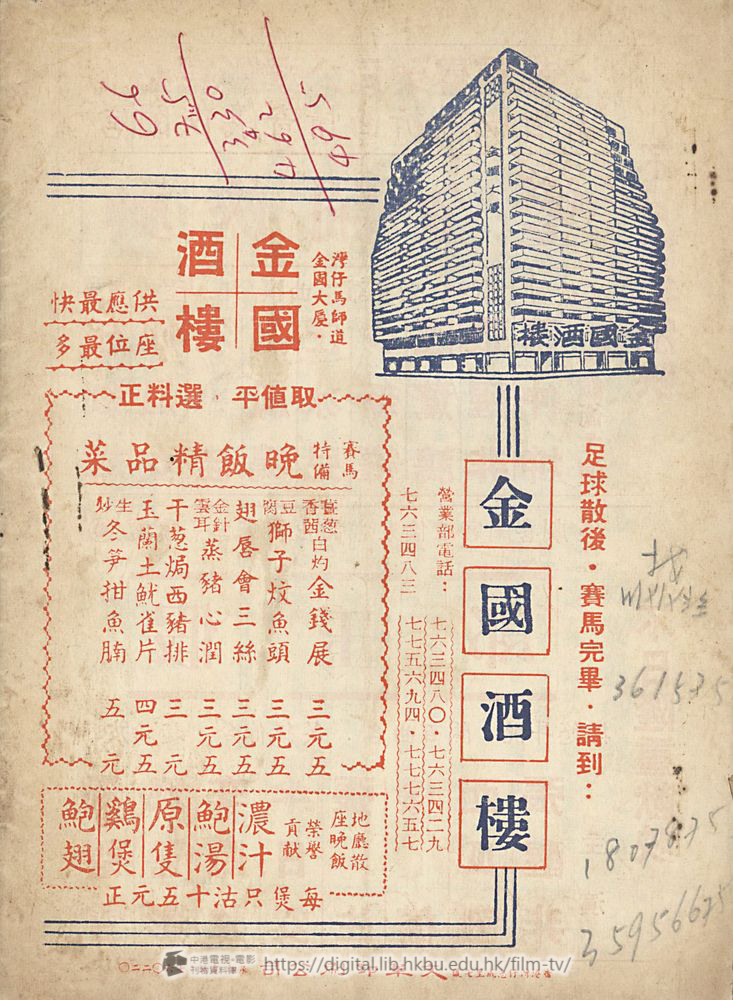 金國大廈
金國酒樓
灣仔馬師道
金國大廈·
金國
酒樓
供應最快
座位最多
取值平·選料正
賽馬
特備
晚飯精品菜
薑葱
香茜
白灼金錢展 三元五
豆腐
獅子炆魚頭 三元五
翅唇會三絲 三元五
金針
雲耳
蒸豬心潤 三元五
干葱焗西豬排 三元
玉蘭土魷雀片 四元五
生炒
冬笋拑魚腩 五元
地廳散
座晚飯
榮譽
貢献
濃汁
鮑湯
原隻
鷄煲
鮑翅
每煲只沽十五元正
足球散後·賽馬完畢·請到：
金國酒樓
營業部電話：
七六三四八〇·七六三四二九
七六三四八三
七七五六九四·七七七六五七
564
294
361575
中港電視·電影
刊物資料庫
https://digital.lib.hkbu.edu.hk/film-tv/